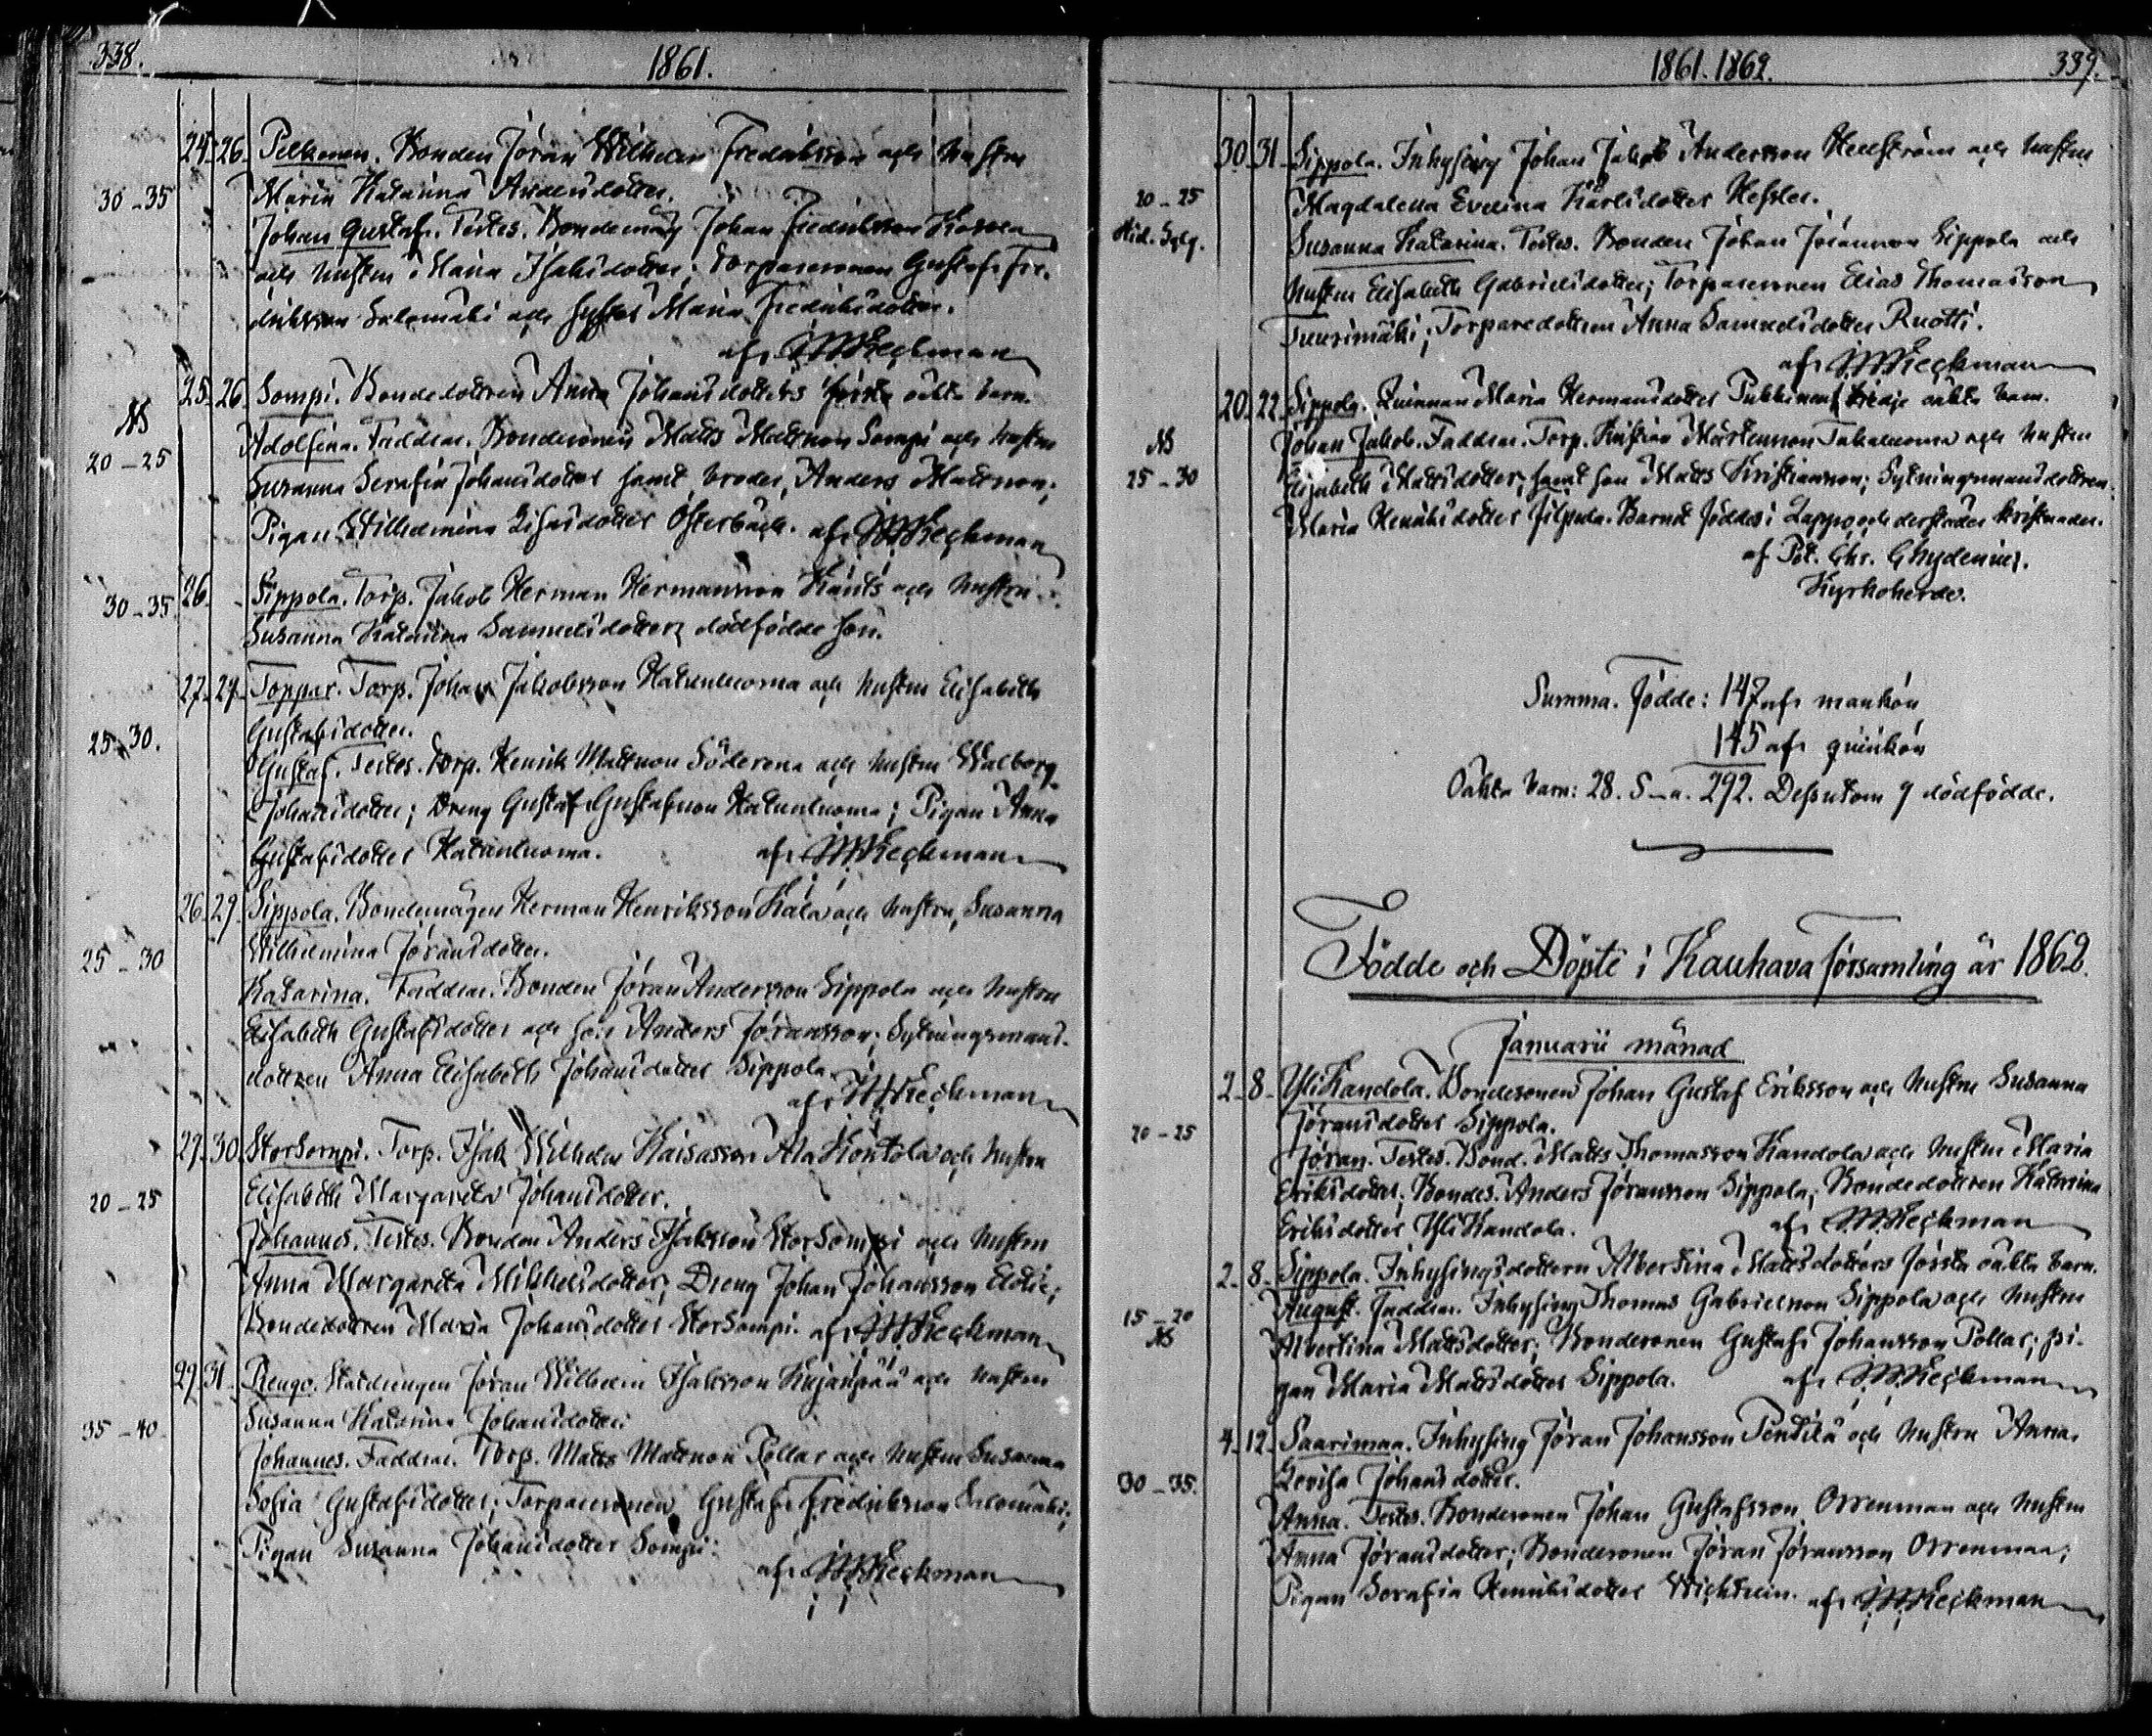 338. 1861.
24. 26. Pelkonen. Bonden Jöran Wilhelm Fredriksson och hustru
30-35 Maria Katarina Andersdotter.
Johan Gustaf. Testes. Bondemåg Johan Fredriksson
och hustru Maria Isaksdotter; Torparesonen Gustaf Fre-
driksson Salomäki och hustru Maria Fredriksdotter.
af JWReckman
25. 26. Sompi. Bondedottren Anna Johansdotters första oäkta barn.
NB Adolfina. Faddrar. Bondesonen Matts Mattsson Sompi och hustru
20-25 Susanna Serafia Johansdotter samt broder, Anders Mattsson;
Pigan Wilhelmina Österback. af JWReckman
26. Sippola. Torp. Jakob Herman Hermansson Kants och hustru
30-35 Susanna Katarina Samuelsdotters dödfödde son.
27. 29. Toppar. Torp. Johan Jakobsson Katunluoma och hustru Elisabeth
25-30. Gustafsdotter.
Gustaf. Testes. Torp. Henrik Mattsson Söderena och hustru Walborg
Johansdotter; Dreng Gustaf Gustafsson Katunluoma; Pigan Anna
Gustafsdotter Katunluoma. af JWReckman
26. 29. Sippola. Bondemågen Herman Henriksson Kala och hustru Susanna
25-30 Wilhelmina Jöransdotter.
Katarina. Faddrar. Bonden Jöran Andersson Sippola och hustru
Elisabeth Gustafsdotter och son Anders Jöransson; Sytningsmans-
dottren Anna Elisabeth Johansdotter Sippola.
af JWReckman
27. 30. StorSompi. Torp. Isak Wilhelm Kaisasson AlaKontola och hustru
20-25 Elisabeth Margareta Johansdotter.
Johannes. Testes. Bonden Anders Isaksson StorSompi och hustru
Anna Margareta Mikkelsdotter; Dreng Johan Johansson
Bondedottren Maria Johansdotter StorSompi. af JWReckman
29. 31. Rengo. Jöran Wilhelm Isaksson Kujanpää och hustru
35-40. Susanna Katarina Johansdotter.
Johannes. Faddrar. Torp. Matts Mattsson Pollar och hustru Susanna
Sofia Gustafsdotter; Torparesonen Gustaf Fredriksson Salomäki;
Pigan Susanna Johansdotter Sompi.
af JWReckman
1861. 1862. 339.
30. 31. Sippola. Inhysing Johan Jakob Andersson Hellström och hustru
20-25 Magdalena Evelina Karlsdotter Hessler.
Susanna Katarina. Testes. Bonden Johan Jöransson Sippola och
hustru Elisabeth Gabrielsdotter; Torparesonen Elias Thomasson
Tuurimäki; Torparedottren Anna Samuelsdotter Ruotti.
af JWReckman
20. 22. Sippola. Quinnan Maria Hermansdotter Pukkinens tredje oäkta barn.
NB Johan Jakob. Faddrar. Torp. Kristian Mårtensson Takaluoma och hustru
25-30 Elisabeth Mattsdotter, samt son Matts Kristiansson; Sytningsmansdottren
Maria Henriksdotter Filpula. Barnet föddes i Lappo och derstädes kristnades.
af Pet. Chr. Chydenius.
Kyrkoherde.
Summa. Födde: 147 af mankön
145 af quinkön
Oäkta barn: 28. S-a. 292. Dessutom 9 dödfödde.
Födde och Döpte i Kauhava församling år 1862.
Januarii månad
2. 8. YliKandola. Bondesonen Johan Gustaf Eriksson och hustru Susanna
20-25 Jöransdotter Sippola.
Jöran. Testes. Bond. Matts Thomasson Kandola och hustru Maria
Eriksdotter; Bondes. Anders Jöransson Sippola; Bondedottren Katarina
Eriksdotter YliKandola. af JWReckman
2. 8. Sippola. Inhysingsdottern Albertina Mattsdotters första oäkta barn.
15-20 August. Faddrar. Inhysing Thomas Gabrielsson Sippola och hustru
NB Albertina Mattsdotter; Bondesonen Gustaf Johansson Pollar; pi-
gan Maria Mattsdotter Sippola. af JWReckman
4. 12. Saarimaa. Inhysing Jöran Johansson Penttilä och hustru Anna
30-35. Lovisa Johansdotter.
Anna. Testes. Bondesonen Johan Gustafsson Orrenmaa och hustru
Anna Jöransdotter; Bondesonen Jöran Jöransson Orrenmaa;
Pigan Serafia Henriksdotter af JWReckman